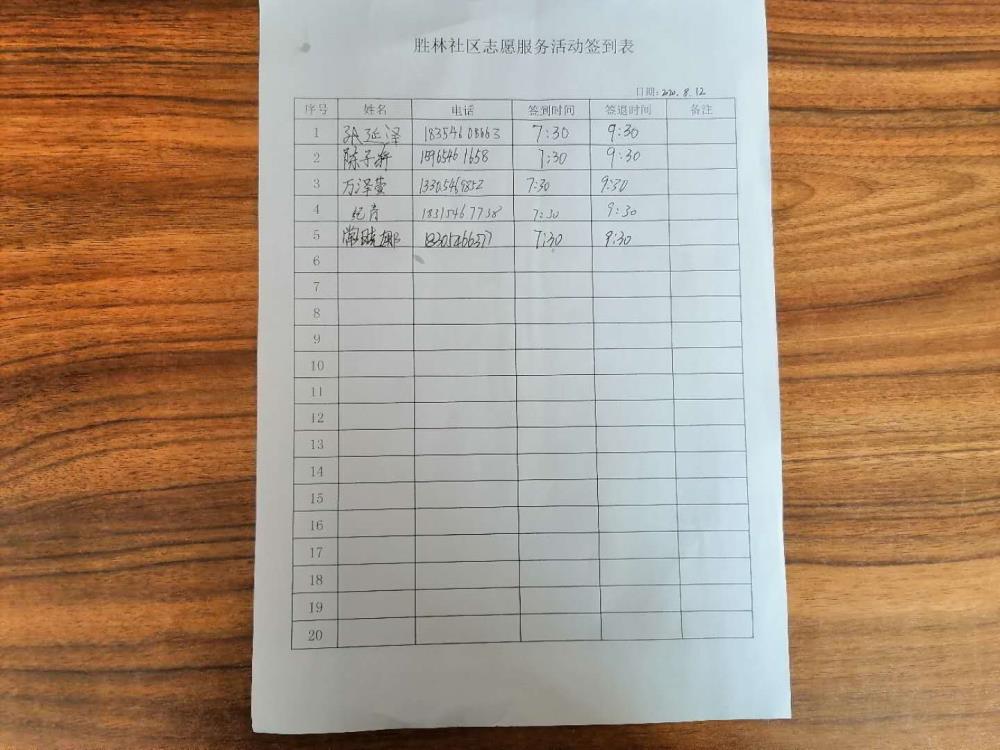 胜林社区志愿服务活动签到表
日期:2020.8.12
序号 姓名 电话 签到时间 签退时间 备注
1 张延泽 18354608663 7:30 9:30
2 陈子新 18965461658 7:30 9:30
3 万泽莹 13305469852 7:30 9:30
4 纪青 18315467738 7:30 9:30
5 常 娜 18305466577 7:30 9:30
6
7
8
9
10
11
12
13
14
15
16
17
18
19
20